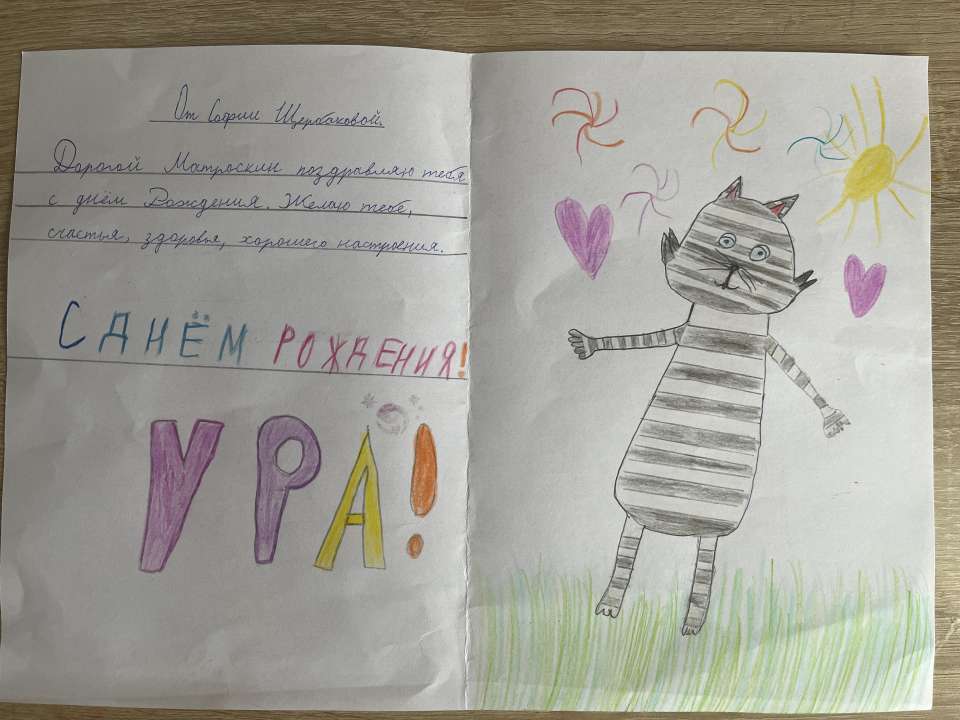 От Софии Щербаковой.
Дорогой Матроскин поздравляю тебя
с днём Рождения. Желаю тебе,
счастья, здоровья, хорошего настроения.
С ДНЁМ РОЖДЕНИЯ!
УРА!